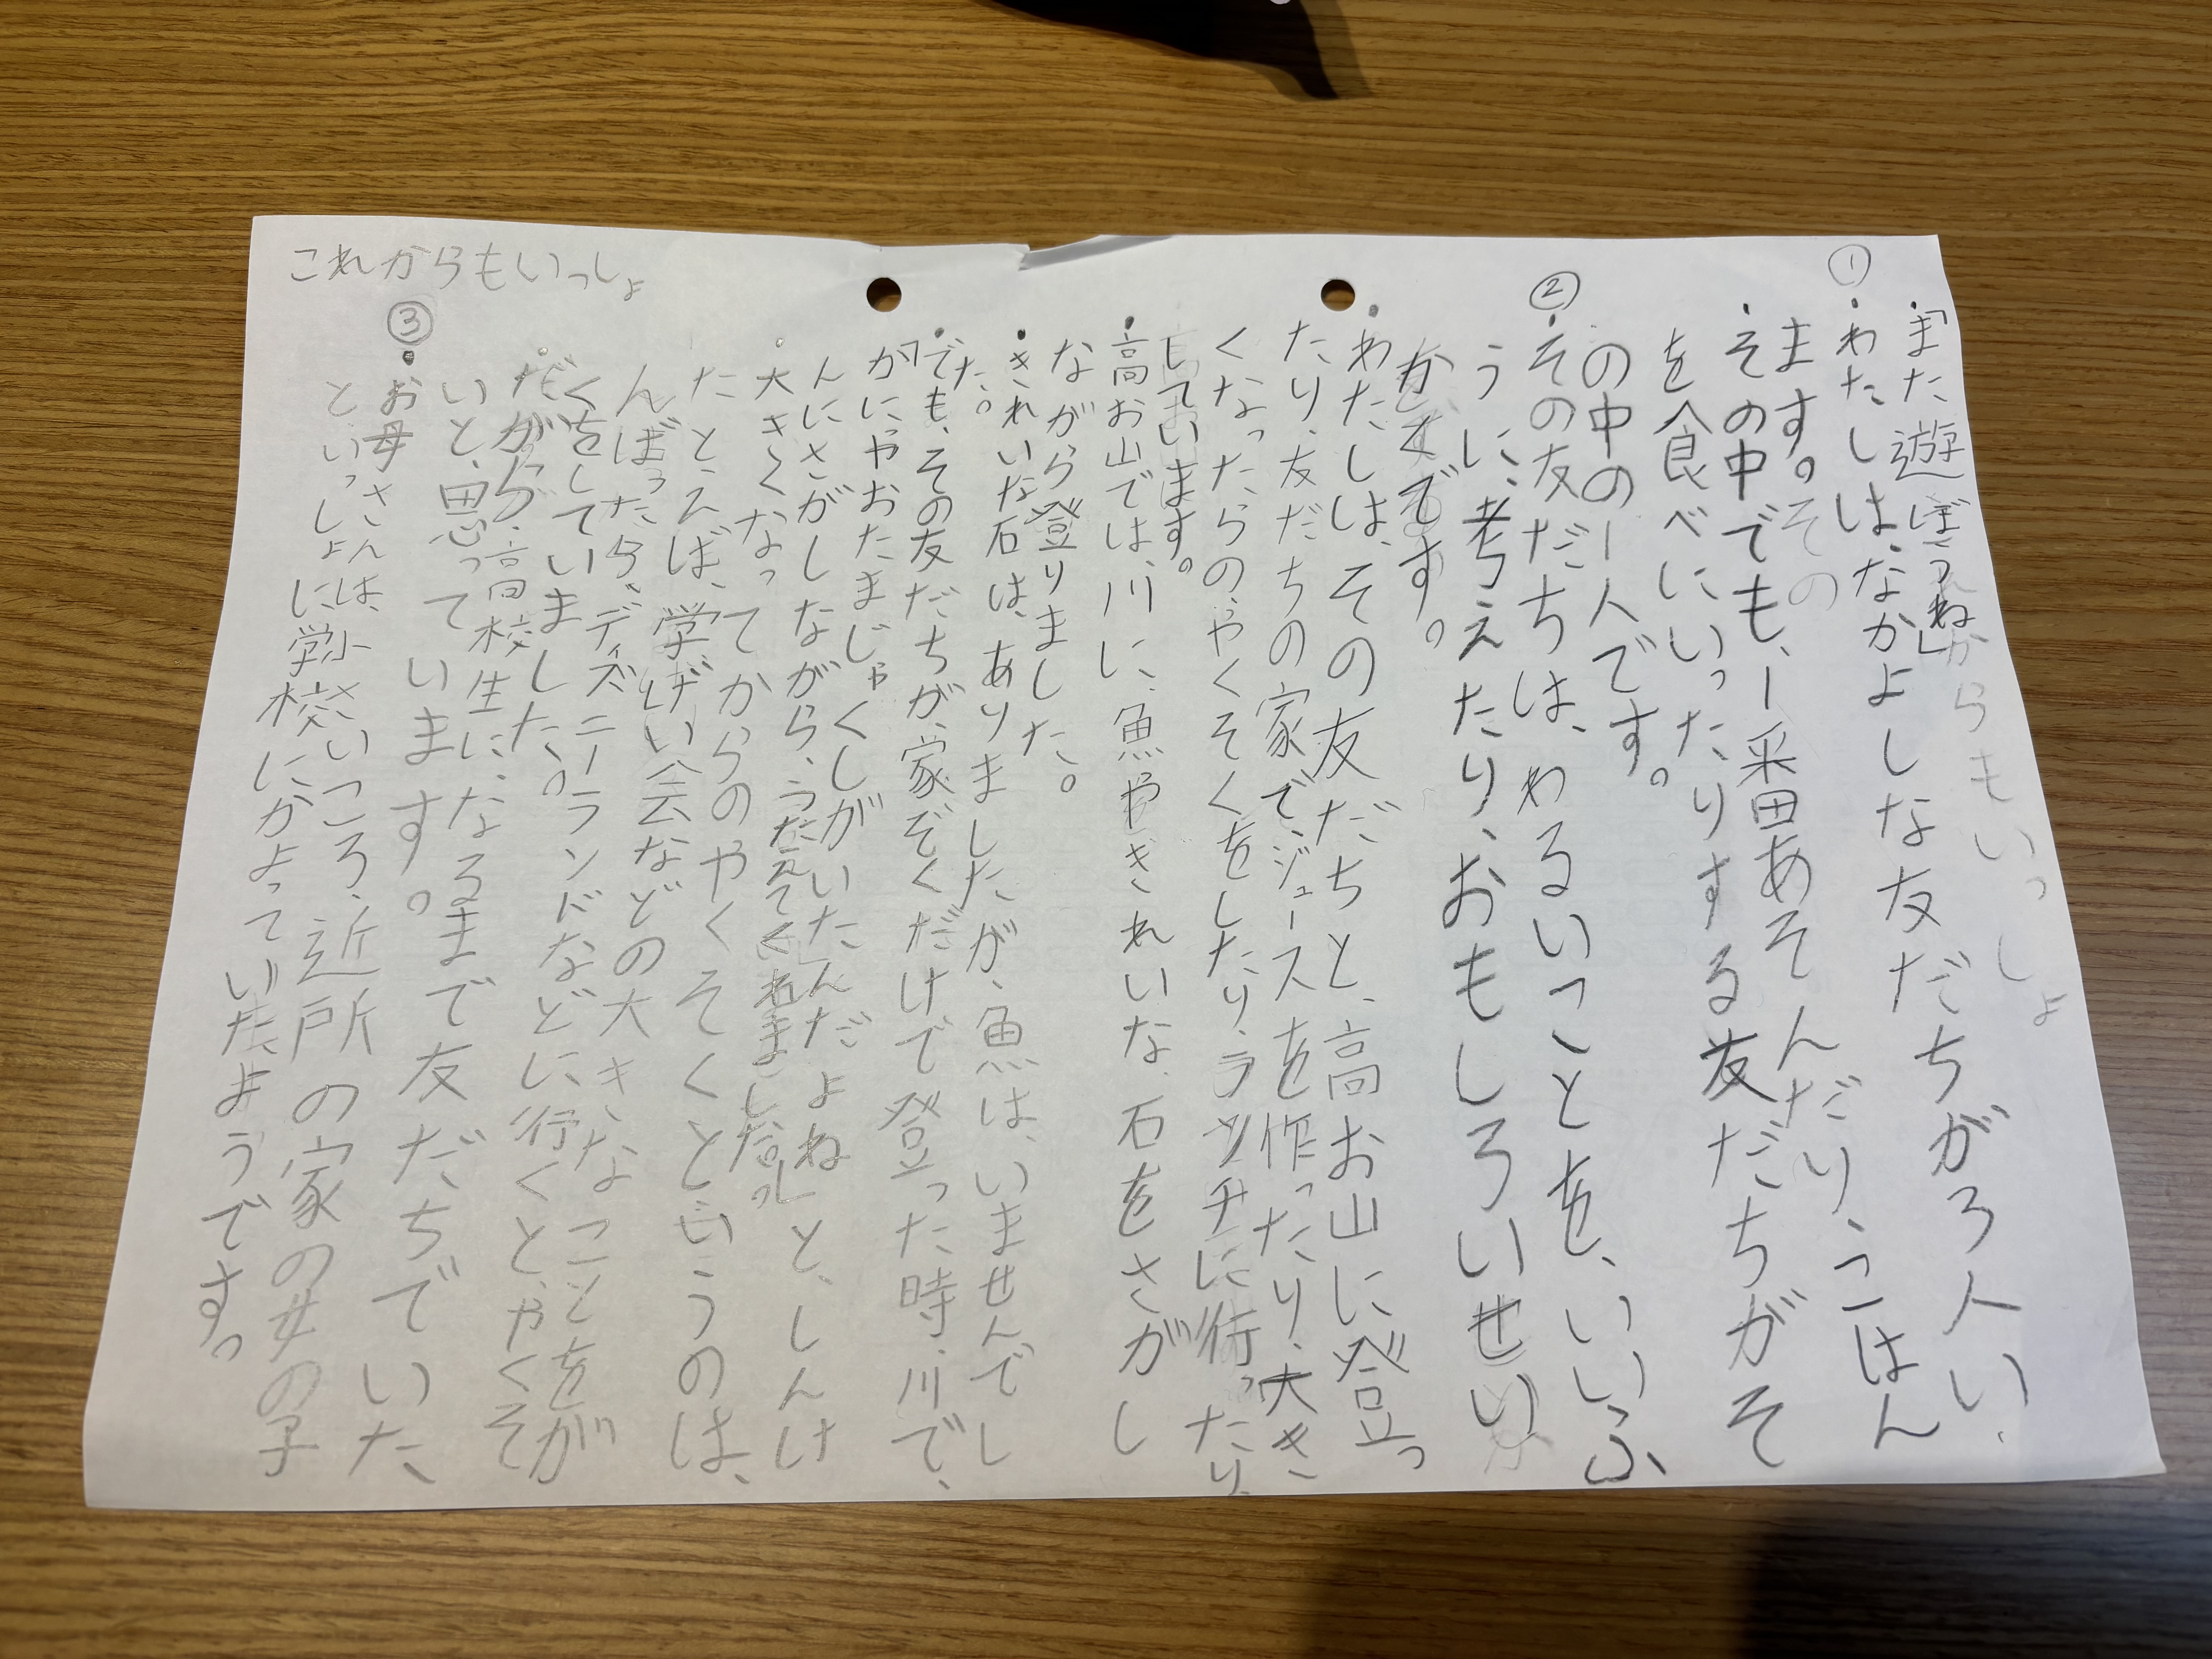 これからもいっしょ
・「また遊ぼうね」
①・わたしは、なかよしな友だちが3人い、
ます。その
・その中でも、1番あそんだり、ごはん
を食べにいったりする友だちがそ
の中の1人です。
②・その友だちは、わるいことを、いいふ
うに、考えたり、おもしろいせい
かくです。
・わたしは、その友だちと、高お山に登っ
たり、友だちの家で、ジュースを作ったり、大き
くなったらの、やくそくをしたり、ランチに行ったり、
しています。
・高お山では、川に、魚やきれいな石をさがし
ながら登りました。
・きれいな石は、ありましたが、魚は、いませんでし
た。
・でも、その友だちが、家ぞくだけで登った時、川で、
「かにやおたまじゃくしがいたんだよね」と、しんけ
んにさがしながら、うたえてくれました。
・大きくなってからのやくそくというのは、
たとえば、学げい会などの大きなことをが
んばったら、ディズニーランドなどに行くと、やくそ
くをしていました。
・だから、高校生に、なるまで友だちでいた、
いと、思っています。
③・お母さんは、小さいころ、近所の家の女の子
といっしょに、学校にかよっていたようです。
これからもいっしょ